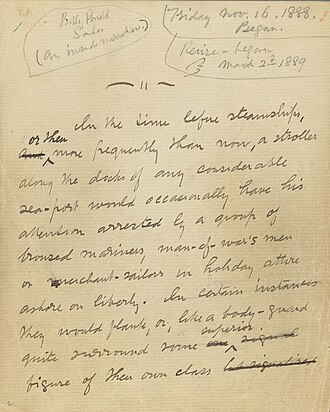 Billy Budd
Sailor
(An inside narrative)
Friday Nov. 16, 1888.
Began.
Revise — began
March 2d 1889
In the time before steamships,
or then more frequently than now, a stroller
along the docks of any considerable
sea-port would occasionally have his
attention arrested by a group of
bronzed mariners, man-of-war's men
or merchant-sailors in holiday attire
ashore on liberty. In certain instances
they would flank, or, like a body-guard
quite surround some superior
figure of their own class